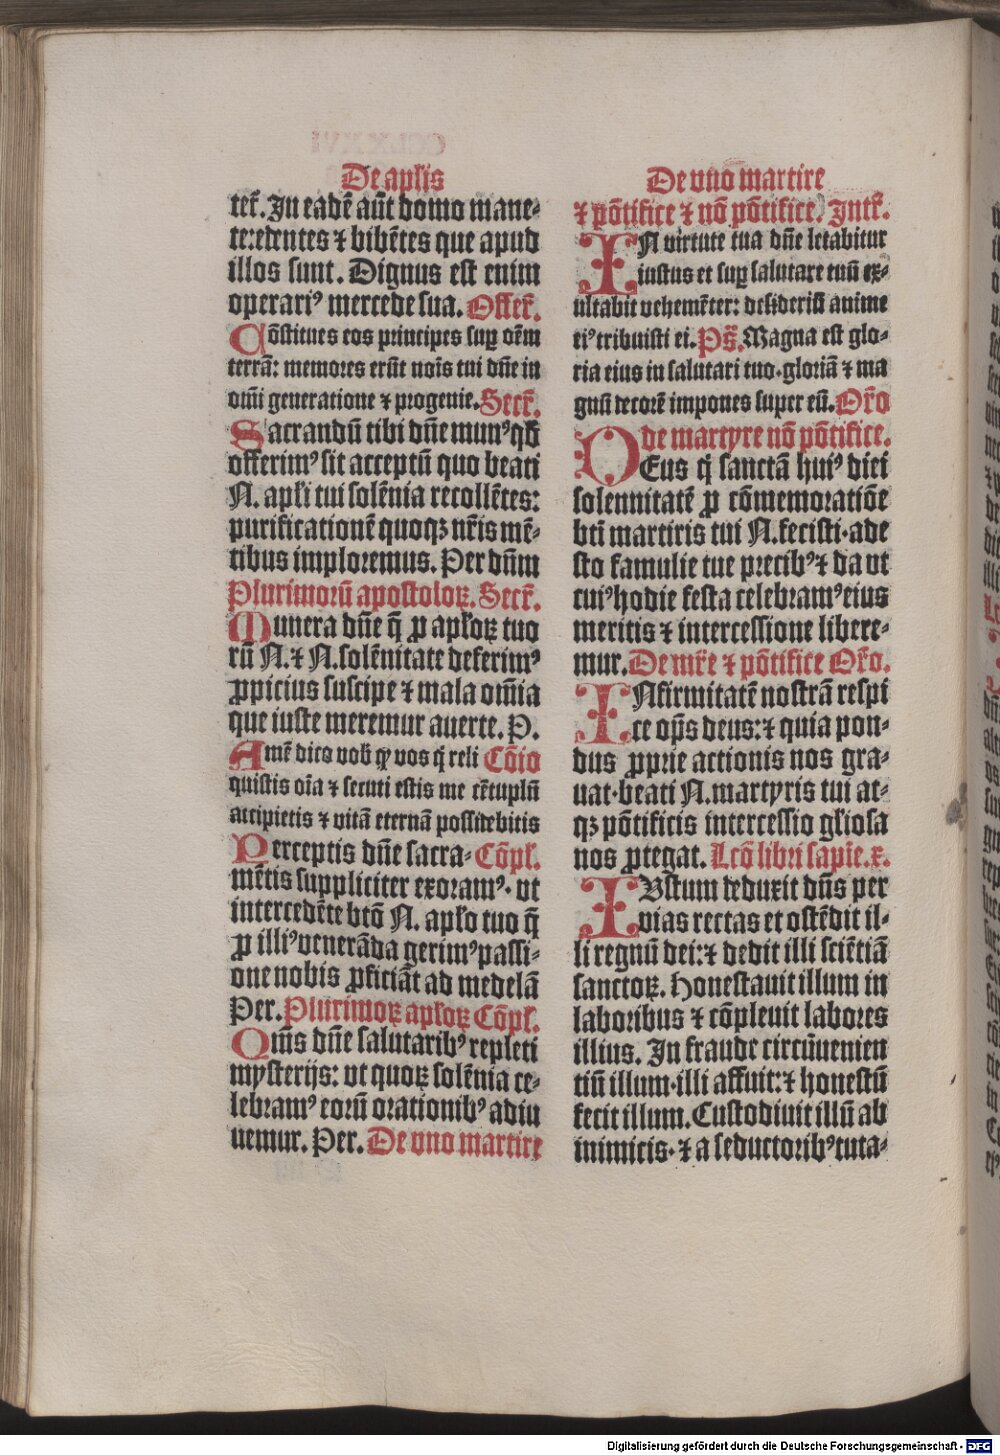 De apl̄is
tet̄. In eadē aūt domo mane⸗
te: edentes ⁊ bibētes que apud
illos sunt. Dignus est enim
operariꝰ mercede sua. Offer̄.
Cōstitues eos principes suꝑ oēm
terrā: memores erūt noīs tui dn̄e in
om̄i generatione ⁊ progenie. Secr̄.
Sacrandū tibi dn̄e munꝰ qđ
offerimꝰ sit acceptū quo beati
N. apl̄i tui solēnia recollētes:
purificationē quoqꝫ nr̄is mē⸗
tibus imploremus. Per dn̄m
Plurimorū apostoloꝝ. Secr̄.
Munera dn̄e q̄ ꝓ apl̄oꝝ tuo
rū N. ⁊ N. solēnitate deferimꝰ
ꝓpicius suscipe ⁊ mala om̄ia
que iuste meremur auerte. P.
Amē dico vob̄ ꝙ vos q̄ reli Cōio
quistis oīa ⁊ secuti estis me cētuplū
accipietis ⁊ vitā eternā possidebitis
Perceptis dn̄e sacra⸗ Cōpl̄.
mētis suppliciter exoramꝰ· vt
intercedēte btō N. apl̄o tuo q̄
ꝓ illiꝰ venerāda gerimꝰ passi⸗
one nobis ꝓficiāt ad medelā
Per. Plurimoꝝ apl̄oꝝ Cōpl̄.
Qūs dn̄e salutaribꝰ repleti
mysterijs: vt quoꝝ solēnia ce⸗
lebramꝰ eorū orationibꝰ adiu
uemur. Per. De vno martire
De vno martire
⁊ pōtifice ⁊ nō pōtifice. Intr̄.
IN virtute tua dn̄e letabitur
iustus et suꝑ salutare tuū ex⸗
ultabit vehemēter: desideriū anime
eiꝰ tribuisti ei. Ps̄. Magna est glo⸗
ria eius in salutari tuo· gloriā ⁊ ma
gnū decorē impones super eū. Or̄o
de martyre nō pōtifice.
DEus q̄ sanctā huiꝰ diei
solennitatē ꝓ cōmemoratiōe
bt̄i martiris tui N. fecisti· ade
sto familie tue precibꝰ ⁊ da vt
cuiꝰ hodie festa celebramꝰ eius
meritis ⁊ intercessione libere⸗
mur. De mr̄e ⁊ pōtifice Or̄o.
INfirmitatē nostrā respi
ce op̄s deus: ⁊ quia pon⸗
dus ꝓprie actionis nos gra⸗
uat· beati N. martyris tui at⸗
qꝫ pōtificis intercessio gl̄iosa
nos ꝓtegat. Lcō libri sapīe. x.
IUstum deduxit dn̄s per
vias rectas et ostēdit il⸗
li regnū dei: ⁊ dedit illi sciētiā
sanctoꝝ. Honestauit illum in
laboribus ⁊ cōpleuit labores
illius. In fraude circūuenien
tiū illum· illi affuit: ⁊ honestū
fecit illum. Custodiuit illū ab
inimicis· ⁊ a seductoribꝰ tuta⸗
Digitalisierung gefördert durch die Deutsche Forschungsgemeinschaft - DFG